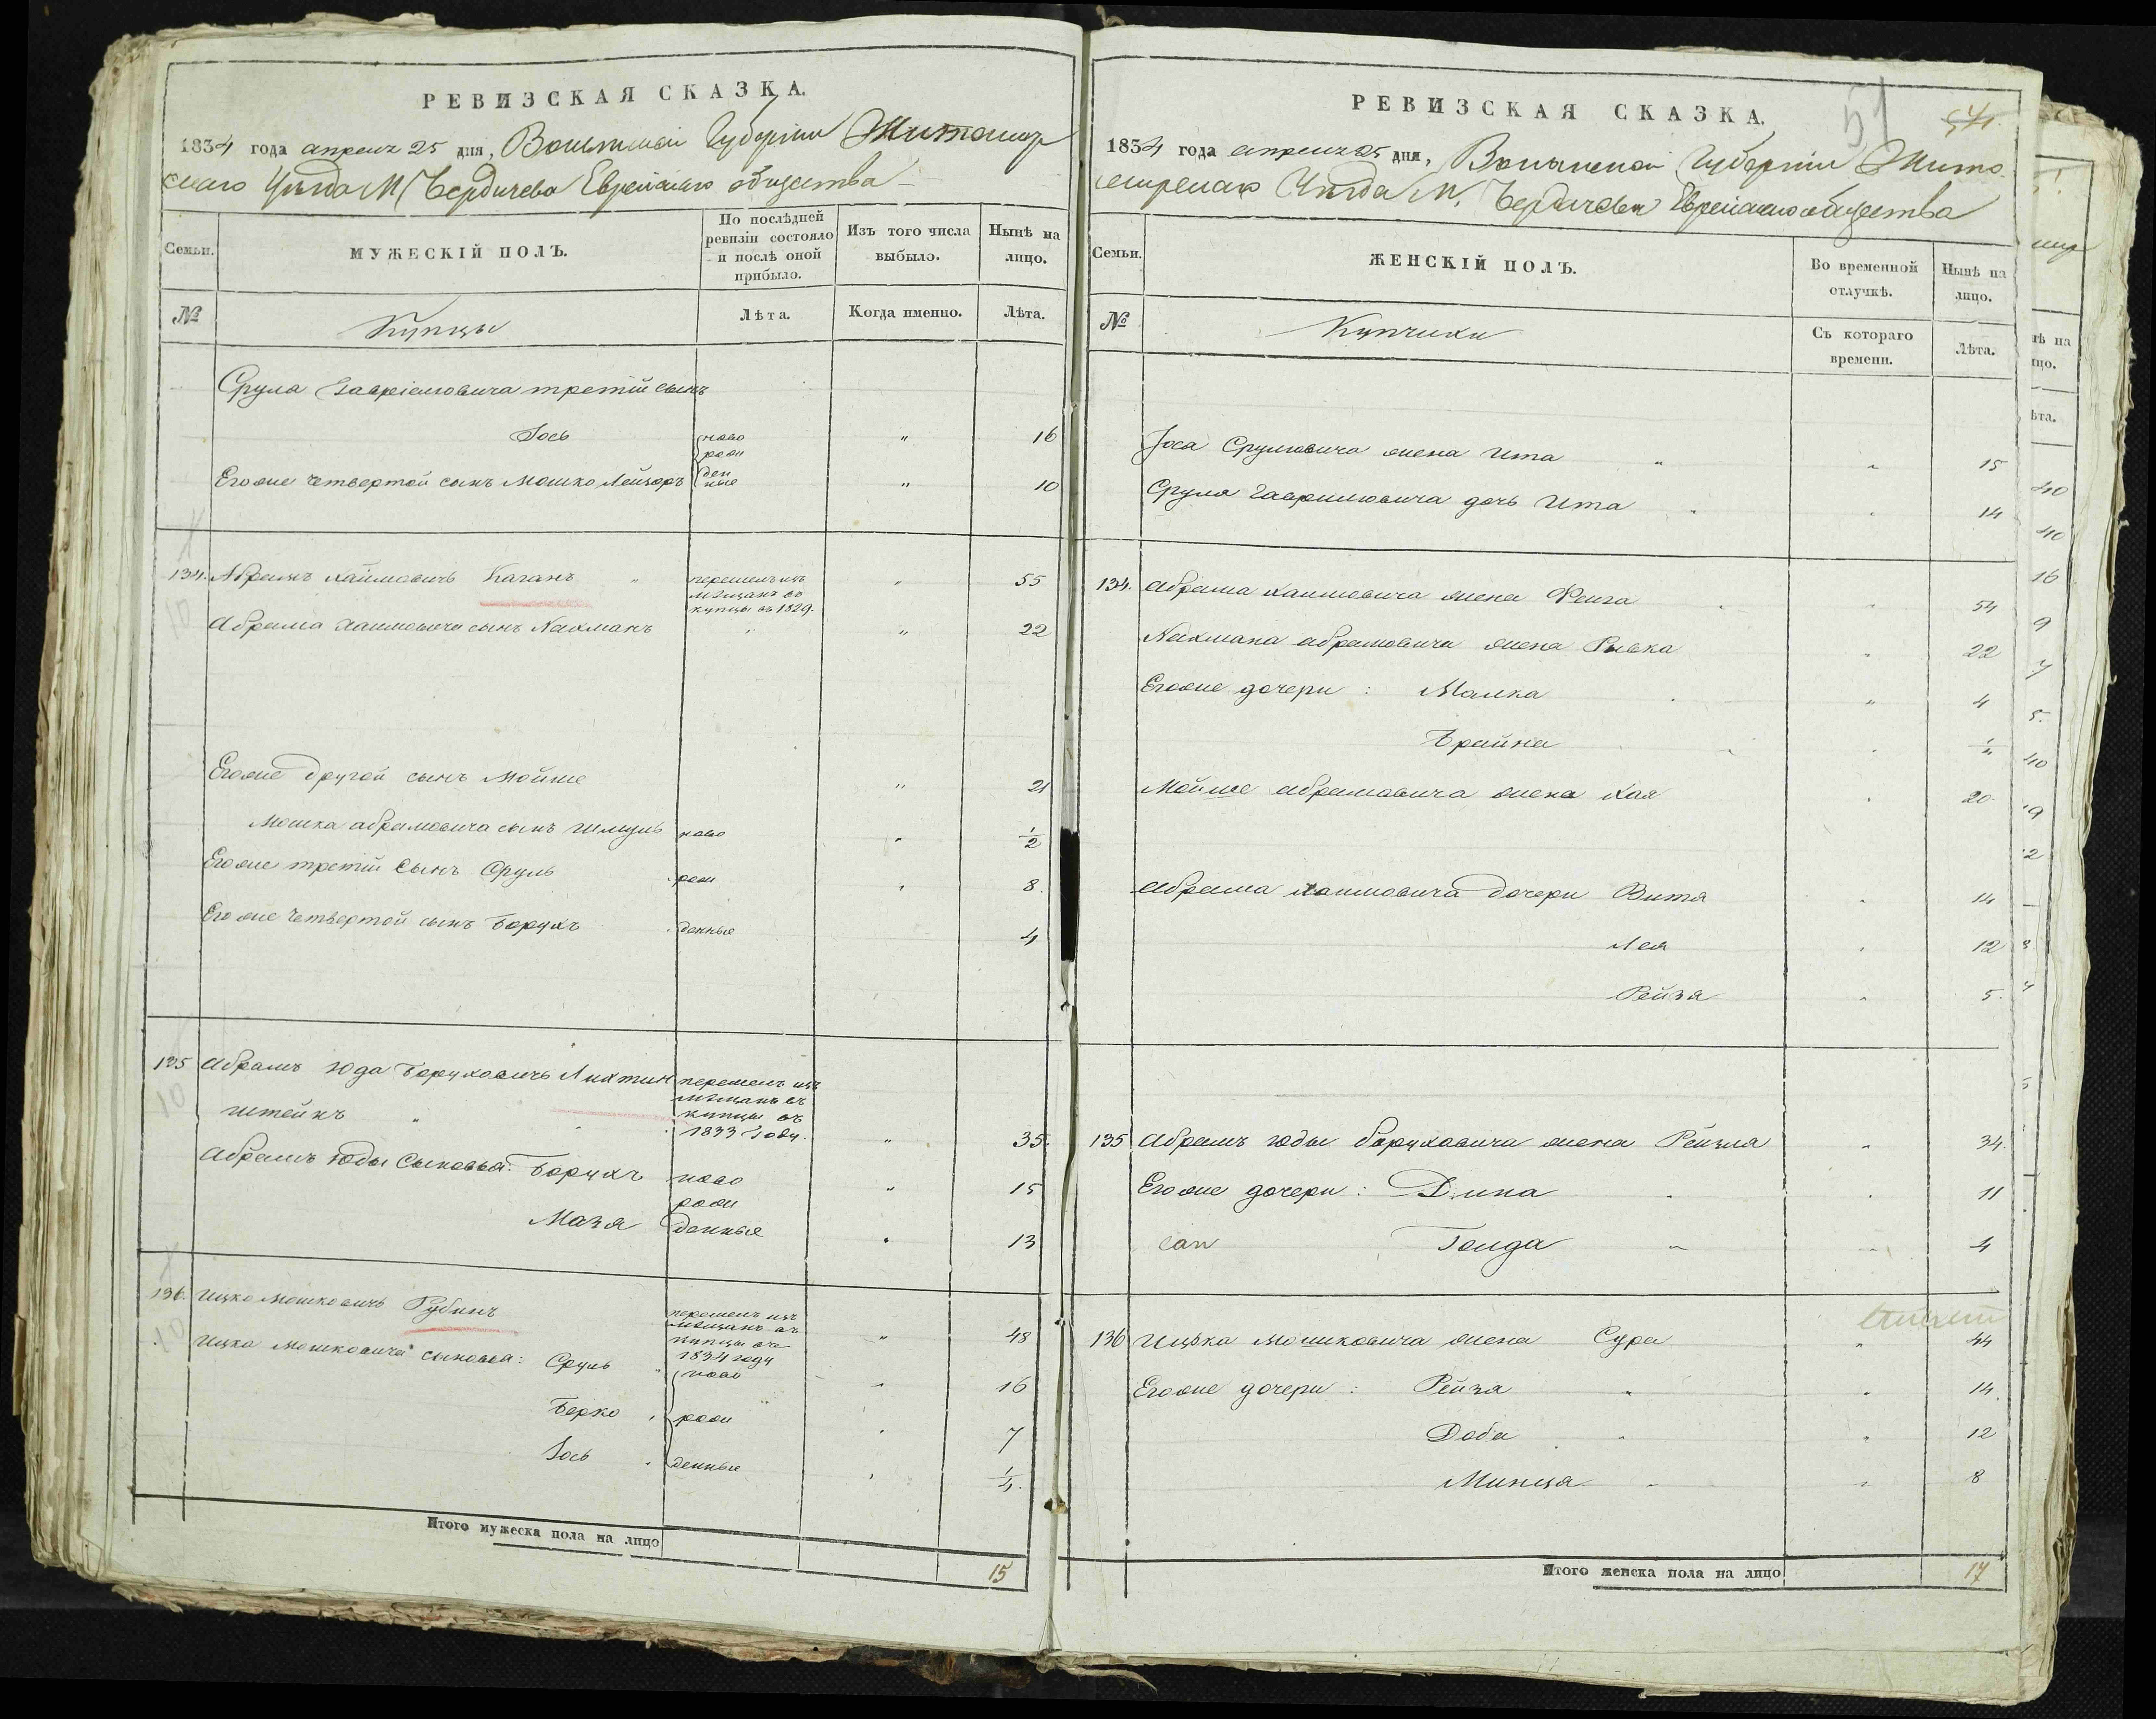 РЕВИЗСКАЯ СКАЗКА.
1834 года апреля 25 дня, Волынской Губерніи Житомир
скаго Уѣзда М. Бердичева Еврейскаго общества
Семьи.
МУЖЕСКІЙ ПОЛЪ.
По послѣдней
ревизіи состояло
и послѣ оной
прибыло.
Изъ того числа
выбыло.
Нынѣ на
лицо.
№
Купцы
Лѣта.
Когда именно.
Лѣта.
Срула Гавріеловича третій сынъ
Іось ново " 16
рож
Егоже четвертой сынъ Мошко Лейзоръ ден " 10
ные
134. Абрамъ Хаимовичъ Каганъ " перешелъ изъ " 55
мѣщанъ въ
купцы въ 1829.
Абрама Хаимовича сынъ Нахманъ " " 22
Егоже другой сынъ Мойше " 21
Мошка Абрамовича сынъ Шмуль ново " 1/2
Егоже третій сынъ Сруль рож " 8.
Егоже четвертой сынъ Борухъ денные 4
135 Абрамъ Юда Боруховичъ Лихтин перешелъ изъ
мѣщанъ въ
штейнъ " купцы въ
1833 году. " 35.
Абрамъ Юды сыновья: Борухъ ново " 15
рож
Мазя денные " 13
136. Ицко Мошковичъ Рубинъ перешелъ изъ
мѣщанъ въ
купцы въ " 48
1834 году
Ицка Мошковича сыновья: Сруль " ново " 16
Берко " рож " 7
Іось " денные " 1/4.
Итого мужеска пола на лицо 15
РЕВИЗСКАЯ СКАЗКА.
51
1834 года апреля 25 дня, Волынской Губерніи Жито
мирскаго Уѣзда М. Бердичева Еврейскаго общества
Семьи.
ЖЕНСКІЙ ПОЛЪ.
Во временной
отлучкѣ.
Нынѣ на
лицо.
№
Купчихи
Съ котораго
времени.
Лѣта.
Іося Сруловича жена Ита " " 15
Сруля Гавриловича дочь Ита " " 14
134. Абрама Хаимовича жена Фейга " " 54
Нахмана Абрамовича жена Рывка " 22
Егоже дочери : Малка " 4
Брайна " 1/2
Мойше Абрамовича жена Хая " 20.
Абрама Хаимовича дочери Витя " 14
Лея " 12
Рейзя " 5.
135 Абрамъ Юды Боруховича жена Рейзля " 34.
Егоже дочери : Дина " " 11
Голда " " 4
136 Ицька Мошковича жена Сура " 44
Егоже дочери : Рейзя " " 14.
Доба " " 12
Минця " " 8
Итого женска пола на лицо 17